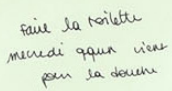 faire la toilette
mecredi qqun vient
pour la douche